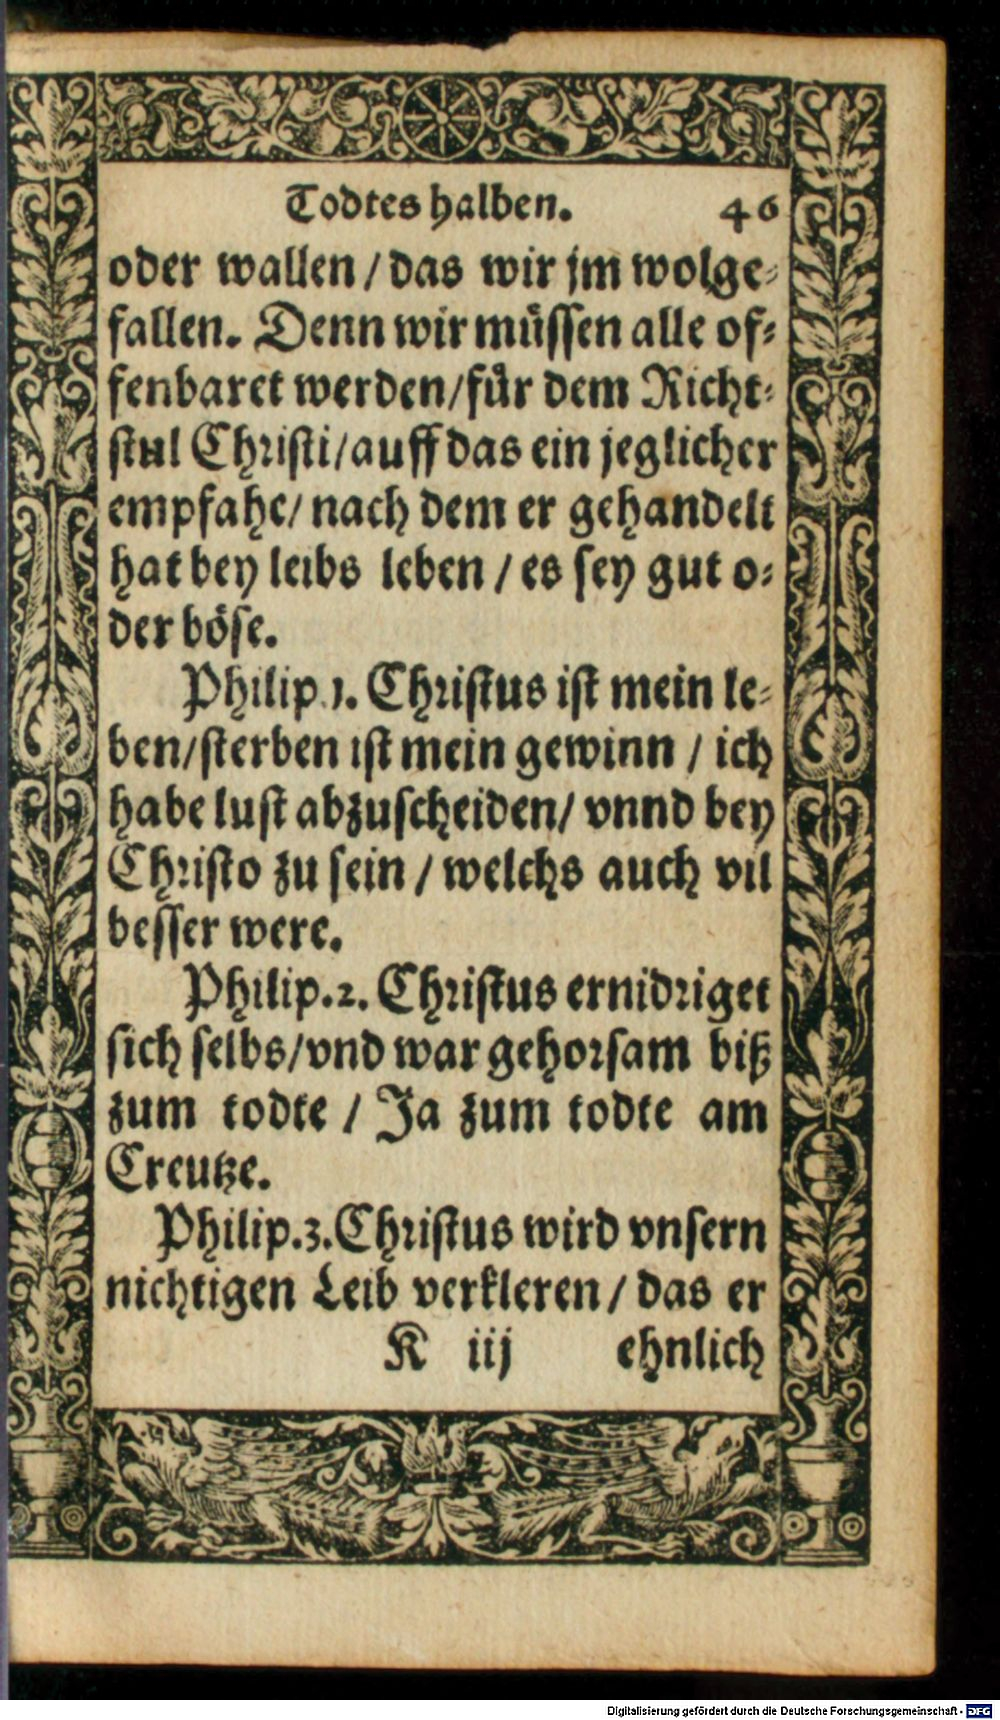 Todtes halben. 46
oder wallen / das wir jm wolge-
fallen. Denn wir müssen alle of-
fenbaret werden/für dem Richt-
stul Christi/auff das ein jeglicher
empfahe/ nach dem er gehandelt
hat bey leibs leben / es sey gut o-
der böse.
Philip 1. Christus ist mein le-
ben/sterben ist mein gewinn / ich
habe lust abzuscheiden/ vnnd bey
Christo zu sein / welchs auch vil
besser were.
Philip.2. Christus ernidriget
sich selbs/vnd war gehorsam biß
zum todte / Ja zum todte am
Creutze.
Philip.3.Christus wird vnsern
nichtigen Leib verkleren / das er
K iij ehnlich
Digitalisierung gefördert durch die Deutsche Forschungsgemeinschaft - DFG